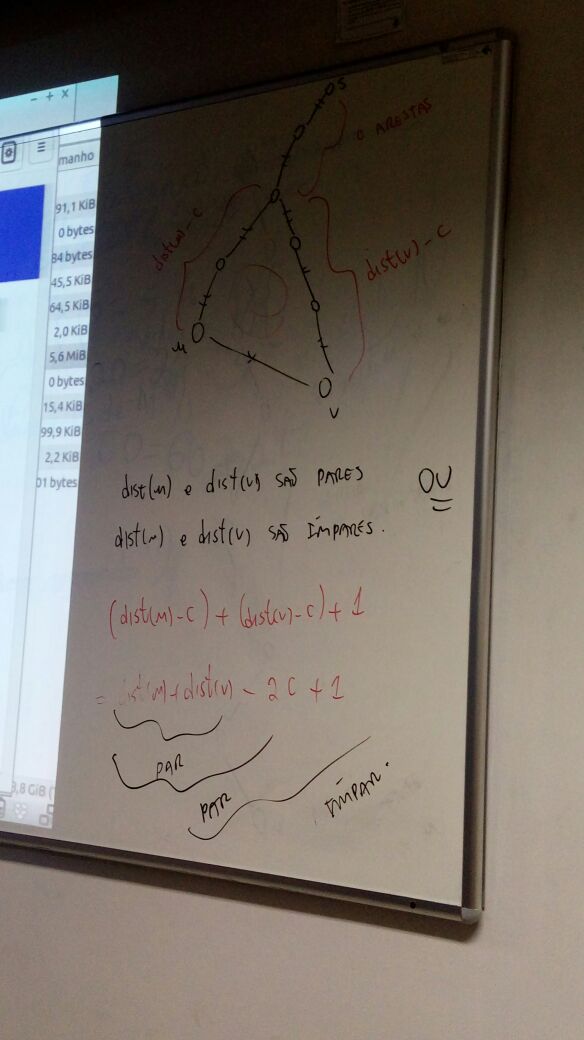 - + ×
manho
91,1 KiB
0 bytes
84 bytes
45,5 KiB
64,5 KiB
2,0 KiB
5,6 MiB
0 bytes
15,4 KiB
99,9 KiB
2,2 KiB
01 bytes
3,8 GiB (
S
ARESTAS
dist(u)-C
dist(v)-C
u
v
dist(u) e dist(v) SÃO PARES OU
dist(u) e dist(v) SÃO ÍMPARES.
(dist(u)-C) + (dist(v)-C) + 1
= dist(u) + dist(v) - 2C + 1
PAR
PAR
ÍMPAR.